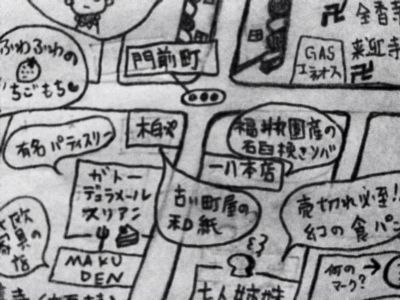 ふわふわの
いちごもち
門前町
全香寺
来迎寺
GAS
エネオス
有名パティスリー
柏や
福井県国産の
石臼挽きソバ
一八本店
ガトー
デュラメール
スリアン
古い町屋の
和紙
売切れ必至!
幻の食パン
家具の
店
MAKU
DEN
七人姉妹
何の
マーク?